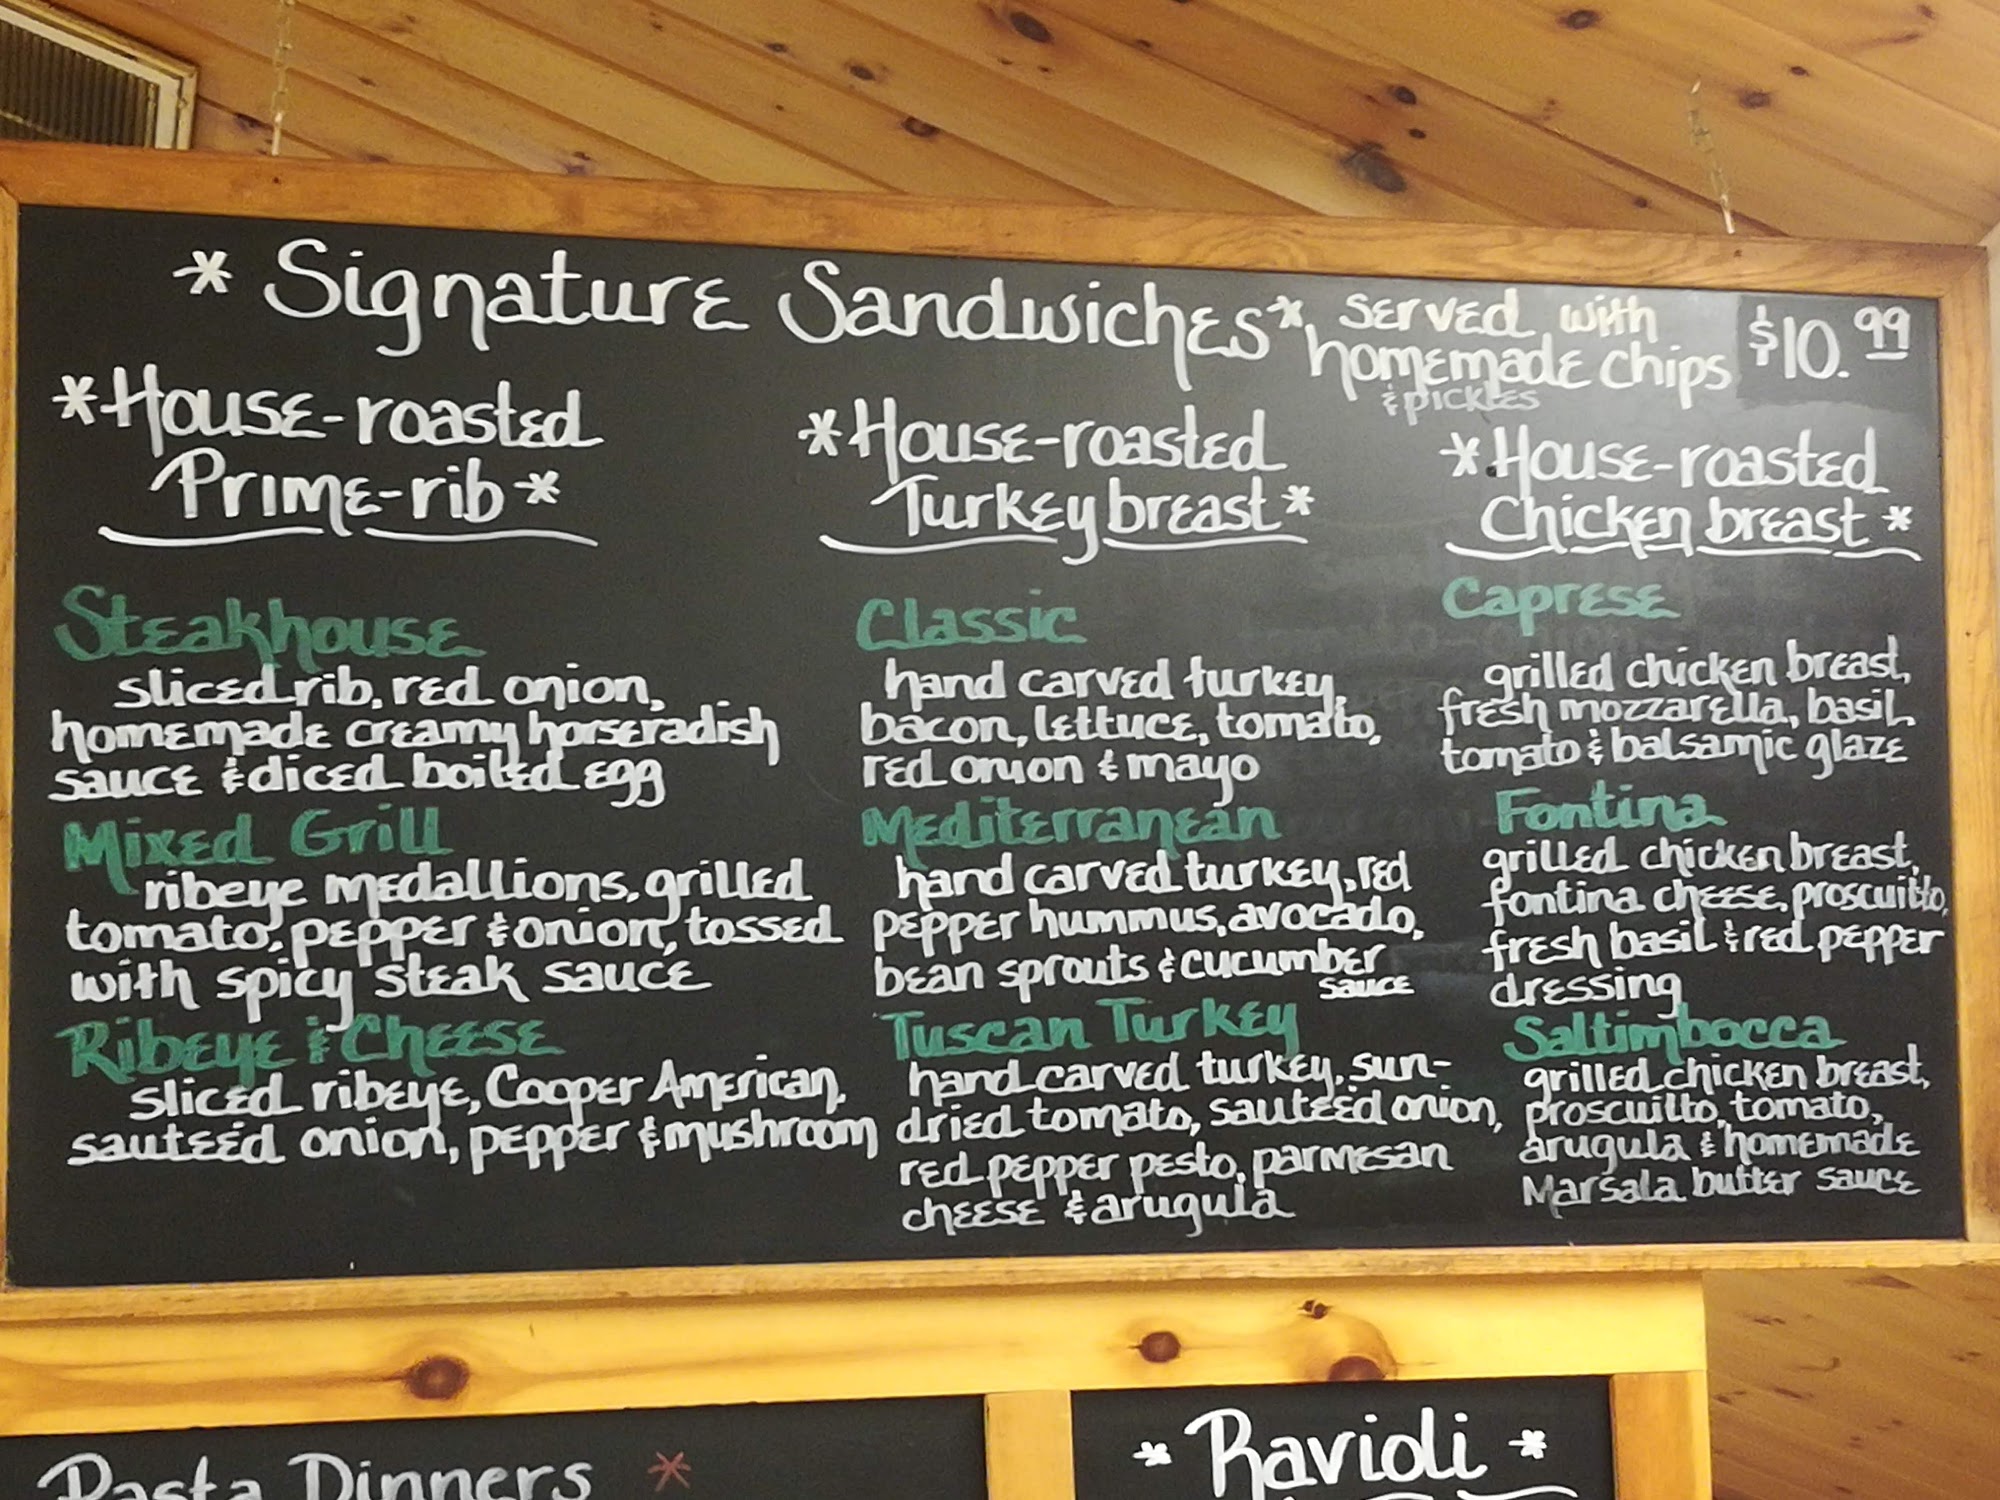 * Signature Sandwiches * served with homemade chips & pickles $10.99
* House-roasted
Prime-rib *
Steakhouse
sliced rib, red onion,
homemade creamy horseradish
sauce & diced boiled egg
Mixed Grill
ribeye medallions, grilled
tomato, pepper & onion, tossed
with spicy steak sauce
Ribeye & Cheese
sliced ribeye, Cooper American,
sauteéd onion, pepper & mushroom
* House-roasted
Turkey breast *
Classic
hand carved turkey,
bacon, lettuce, tomato,
red onion & mayo
Mediterranean
hand carved turkey, red
pepper hummus, avocado,
bean sprouts & cucumber
sauce
Tuscan Turkey
hand carved turkey, sun-
dried tomato, sauteéd onion,
red pepper pesto, parmesan
cheese & arugula
* House-roasted
Chicken breast *
Caprese
grilled chicken breast,
fresh mozzarella, basil,
tomato & balsamic glaze
Fontina
grilled chicken breast,
fontina cheese, proscuitto,
fresh basil & red pepper
dressing
Saltimbocca
grilled chicken breast,
proscuitto, tomato,
arugula & homemade
Marsala butter sauce
Pasta Dinners *
* Ravioli *